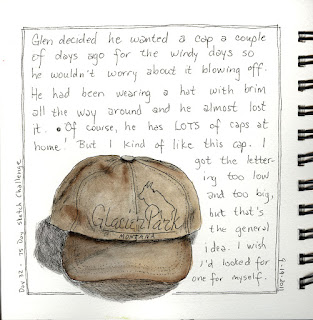 Glen decided he wanted a cap a couple
of days ago for the windy days so
he wouldn't worry about it blowing off.
He had been wearing a hat with brim
all the way around and he almost lost
it. • Of course, he has LOTS of caps at
home! But I kind of like this cap. I
got the letter-
ing too low
and too big,
but that's
the general
idea. I wish
I'd looked for
one for myself.
Glacier Park
MONTANA
Day 32 - 75 Day Sketch Challenge